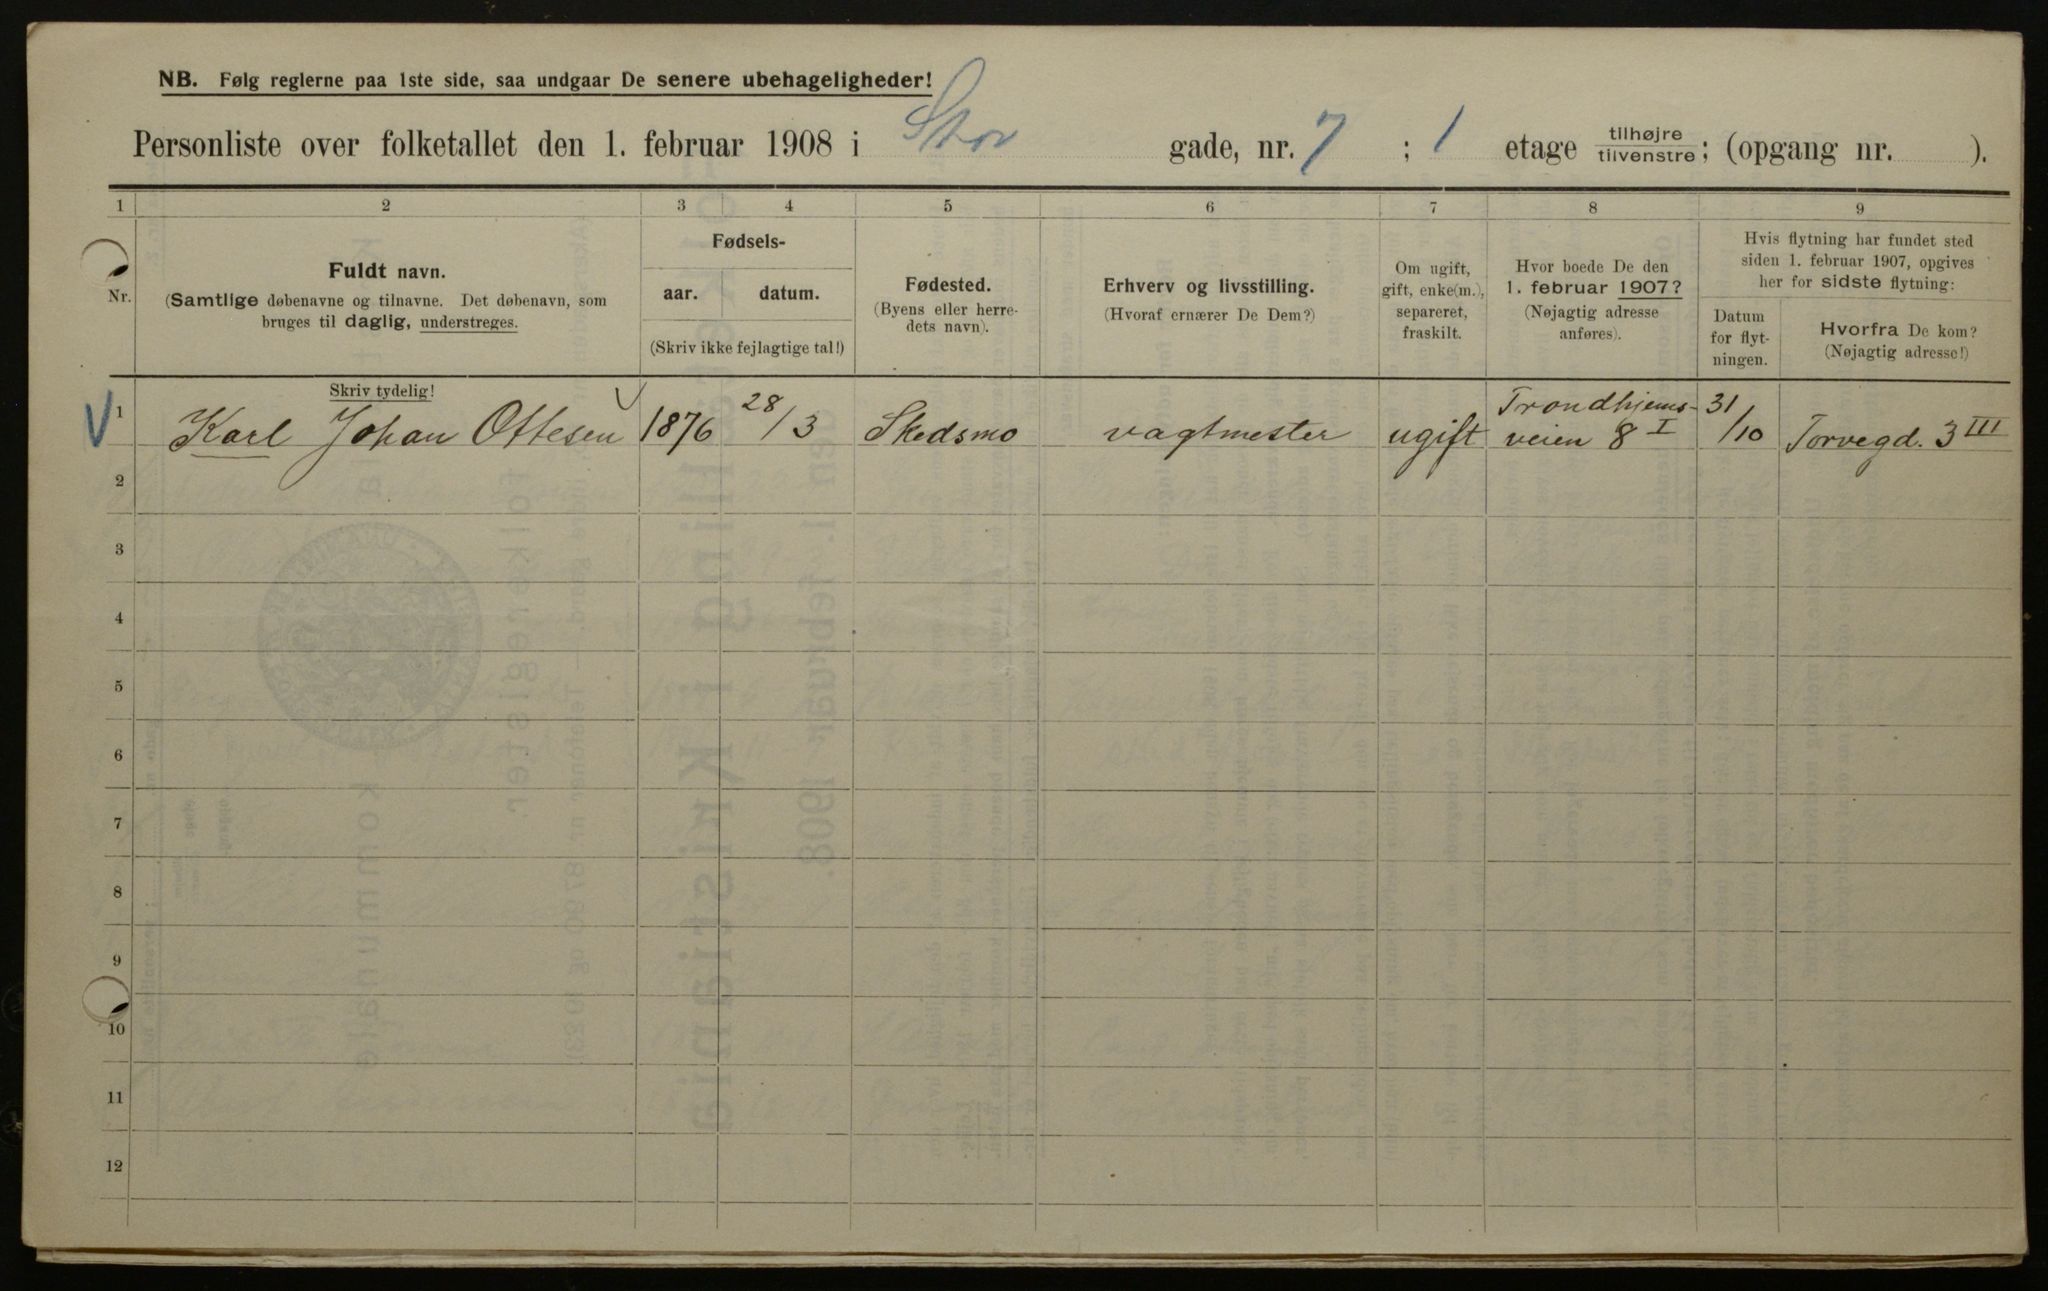 NB. Følg reglerne paa 1ste side, saa undgaar De senere ubehageligheder!
Personliste over folketallet den 1. februar 1908 i Stor gade, nr. 7 ; 1 etage tilhøjre/tilvenstre; (opgang nr. ).
1 2 3 4 5 6 7 8 9
Nr.
Fuldt navn.
(Samtlige døbenavne og tilnavne. Det døbenavn, som
bruges til daglig, understreges.
Fødsels-
aar. datum.
(Skriv ikke fejlagtige tal!)
Fødested.
(Byens eller herre-
dets navn).
Erhverv og livsstilling.
(Hvoraf ernærer De Dem?)
Om ugift,
gift, enke(m.),
separeret,
fraskilt.
Hvor boede De den
1. februar 1907?
(Nøjagtig adresse
anføres).
Hvis flytning har fundet sted
siden 1. februar 1907, opgives
her for sidste flytning:
Datum
for flyt-
ningen.
Hvorfra De kom?
(Nøjagtig adresse!)
Skriv tydelig!
1 Karl Johan Ottesen 1876 28/3 Skedsmo vagtmester ugift Trondhjems-
veien 8 I 31/10 Torvegd. 3 III
2
3
4
5
6
7
8
9
10
11
12